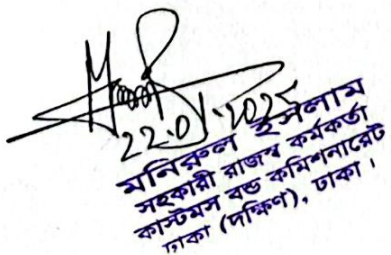 22.01.2025
মনিরুল ইসলাম
সহকারী রাজস্ব কর্মকর্তা
কাস্টমস বন্ড কমিশনারেট
ঢাকা (দক্ষিণ), ঢাকা।